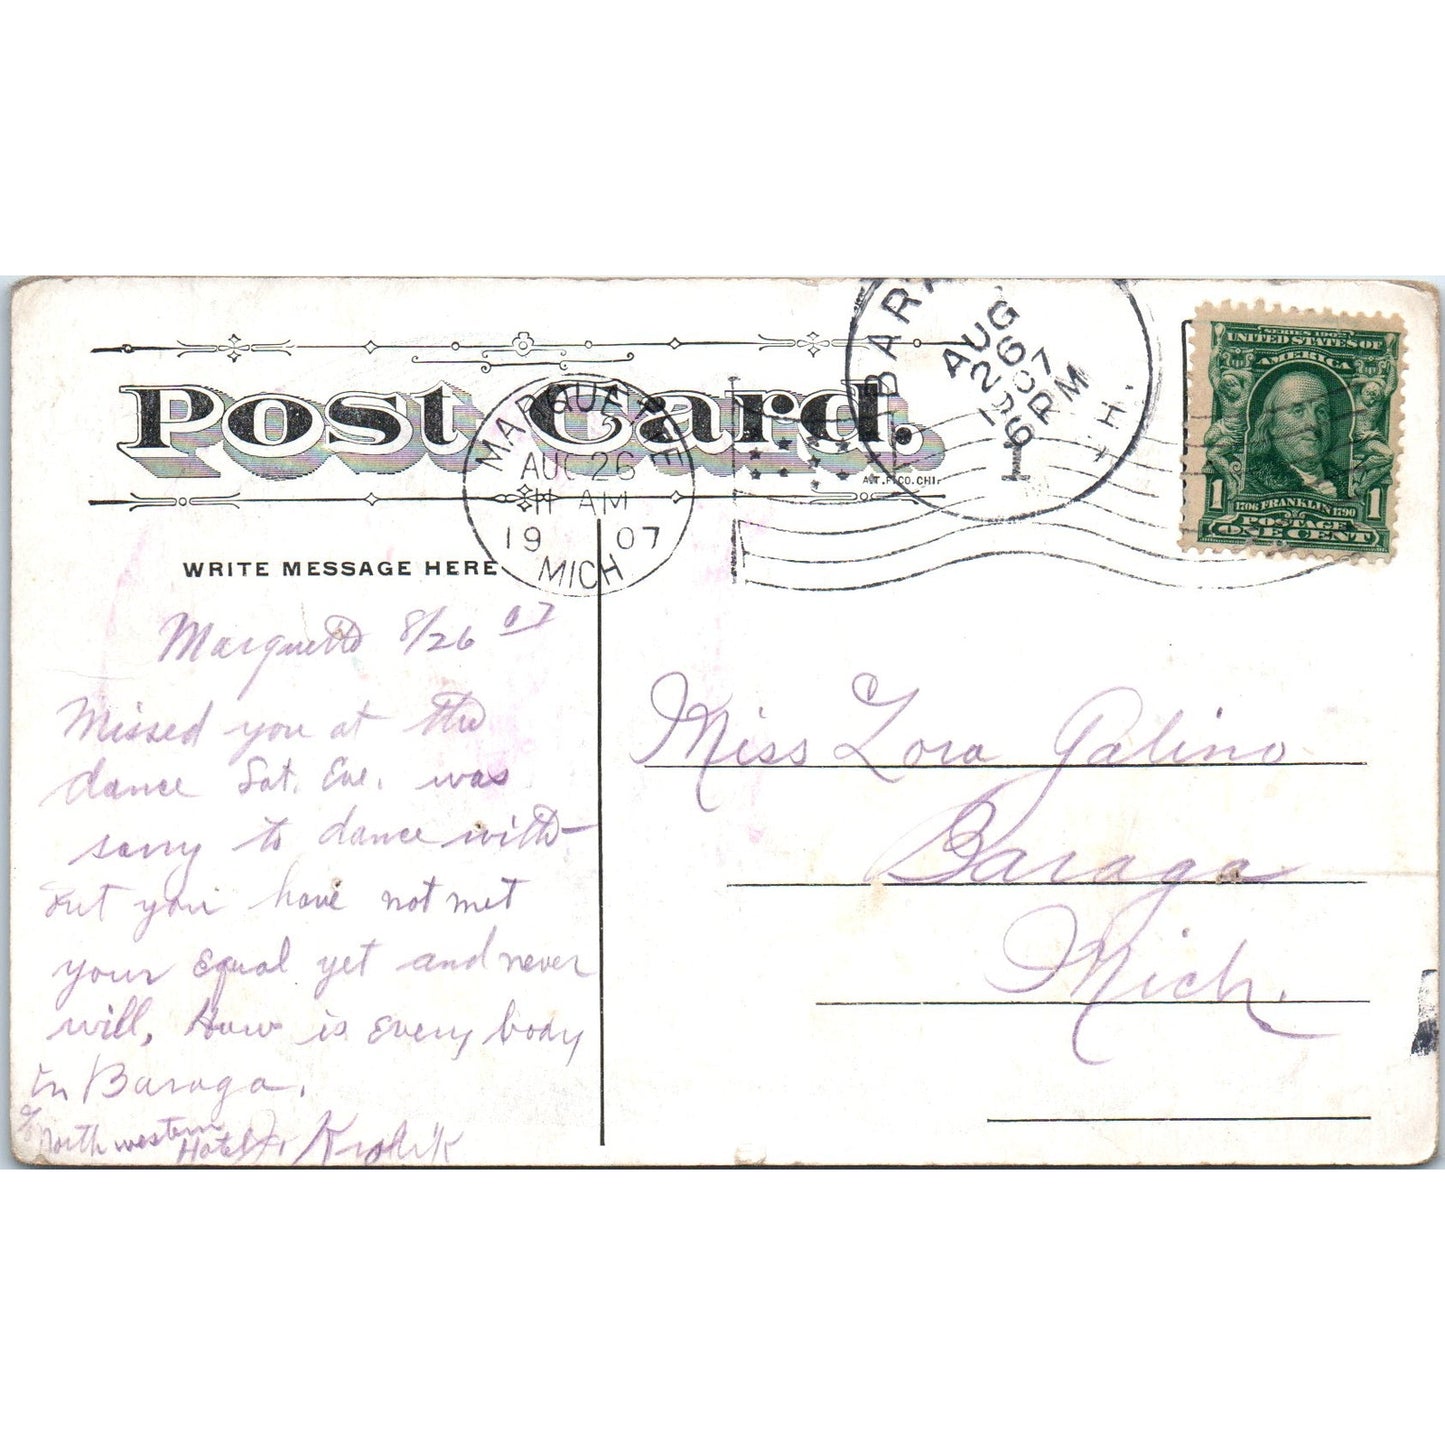 Post Card.
A.T.F.CO.CHI.
MARQUETTE
AUG 26
11 AM
1907
MICH.
BAR
AUG
26
1907
6 PM
1
SERIES 1902
UNITED STATES OF
AMERICA
1706 FRANKLIN 1790
POSTAGE
1 ONE CENT 1
WRITE MESSAGE HERE
Marquette 8/26 07
Missed you at the
dance Sat. Eve. was
sorry to dance with-
out you have not met
your Equal yet and never
will, How is Every body
in Baraga.
c/o North western
Hotel
Miss Zora Galino
Baraga
Mich.